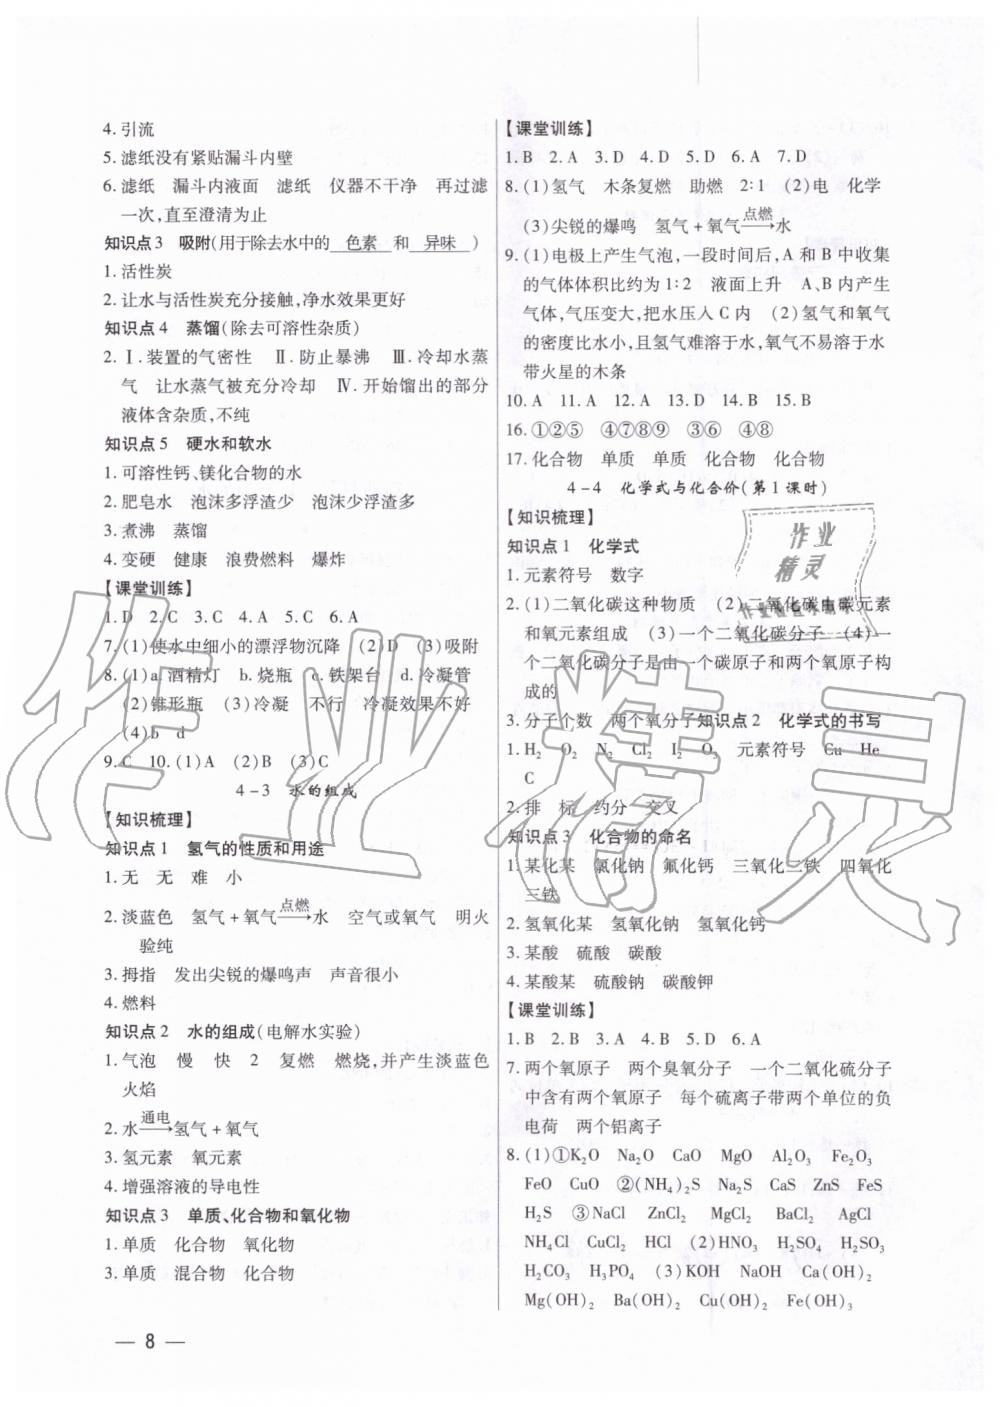 4.引流
5.滤纸没有紧贴漏斗内壁
6.滤纸 漏斗内液面 滤纸 仪器不干净 再过滤
一次,直至澄清为止
知识点3 吸附(用于除去水中的 色素 和 异味 )
1.活性炭
2.让水与活性炭充分接触,净水效果更好
知识点4 蒸馏(除去可溶性杂质)
2.Ⅰ.装置的气密性 Ⅱ.防止暴沸 Ⅲ.冷却水蒸
气 让水蒸气被充分冷却 Ⅳ.开始馏出的部分
液体含杂质,不纯
知识点5 硬水和软水
1.可溶性钙、镁化合物的水
2.肥皂水 泡沫多浮渣少 泡沫少浮渣多
3.煮沸 蒸馏
4.变硬 健康 浪费燃料 爆炸
【课堂训练】
1.D 2.C 3.C 4.A 5.C 6.A
7.(1)使水中细小的漂浮物沉降 (2)D (3)吸附
8.(1)a.酒精灯 b.烧瓶 c.铁架台 d.冷凝管
(2)锥形瓶 (3)冷凝 不行 冷凝效果不好
(4)b d
9.C 10.(1)A (2)B (3)C
4-3 水的组成
【知识梳理】
知识点1 氢气的性质和用途
1.无 无 难 小
2.淡蓝色 氢气+氧气 点燃→ 水 空气或氧气 明火
验纯
3.拇指 发出尖锐的爆鸣声 声音很小
4.燃料
知识点2 水的组成(电解水实验)
1.气泡 慢 快 2 复燃 燃烧,并产生淡蓝色
火焰
2.水 通电→ 氢气+氧气
3.氢元素 氧元素
4.增强溶液的导电性
知识点3 单质、化合物和氧化物
1.单质 化合物 氧化物
3.单质 混合物 化合物
— 8 —
【课堂训练】
1.B 2.A 3.D 4.D 5.D 6.A 7.D
8.(1)氢气 木条复燃 助燃 2∶1 (2)电 化学
(3)尖锐的爆鸣 氢气+氧气 点燃→ 水
9.(1)电极上产生气泡,一段时间后,A 和 B 中收集
的气体体积比约为 1∶2 液面上升 A、B 内产生
气体,气压变大,把水压入 C 内 (2)氢气和氧气
的密度比水小,且氢气难溶于水,氧气不易溶于水
带火星的木条
10.A 11.A 12.A 13.D 14.B 15.B
16.①②⑤ ④⑦⑧⑨ ③⑥ ④⑧
17.化合物 单质 单质 化合物 化合物
4-4 化学式与化合价(第1课时)
【知识梳理】
知识点1 化学式
1.元素符号 数字
2.(1)二氧化碳这种物质 (2)二氧化碳由碳元素
和氧元素组成 (3)一个二氧化碳分子 (4)一
个二氧化碳分子是由一个碳原子和两个氧原子构
成的
3.分子个数 两个氧分子知识点2 化学式的书写
1.H₂ O₂ N₂ Cl₂ I₂ O₃ 元素符号 Cu He
C
2.排 标 约分 交叉
知识点3 化合物的命名
1.某化某 氯化钠 氟化钙 三氧化二铁 四氧化
三铁
2.氢氧化某 氢氧化钠 氢氧化钙
3.某酸 硫酸 碳酸
4.某酸某 硫酸钠 碳酸钾
【课堂训练】
1.B 2.B 3.A 4.B 5.D 6.A
7.两个氧原子 两个臭氧分子 一个二氧化硫分子
中含有两个氧原子 每个硫离子带两个单位的负
电荷 两个铝离子
8.(1)①K₂O Na₂O CaO MgO Al₂O₃ Fe₂O₃
FeO CuO ②(NH₄)₂S Na₂S CaS ZnS FeS
H₂S ③NaCl ZnCl₂ MgCl₂ BaCl₂ AgCl
NH₄Cl CuCl₂ HCl (2)HNO₃ H₂SO₄ H₂SO₃
H₂CO₃ H₃PO₄ (3)KOH NaOH Ca(OH)₂
Mg(OH)₂ Ba(OH)₂ Cu(OH)₂ Fe(OH)₃
作业精灵
作业
精灵